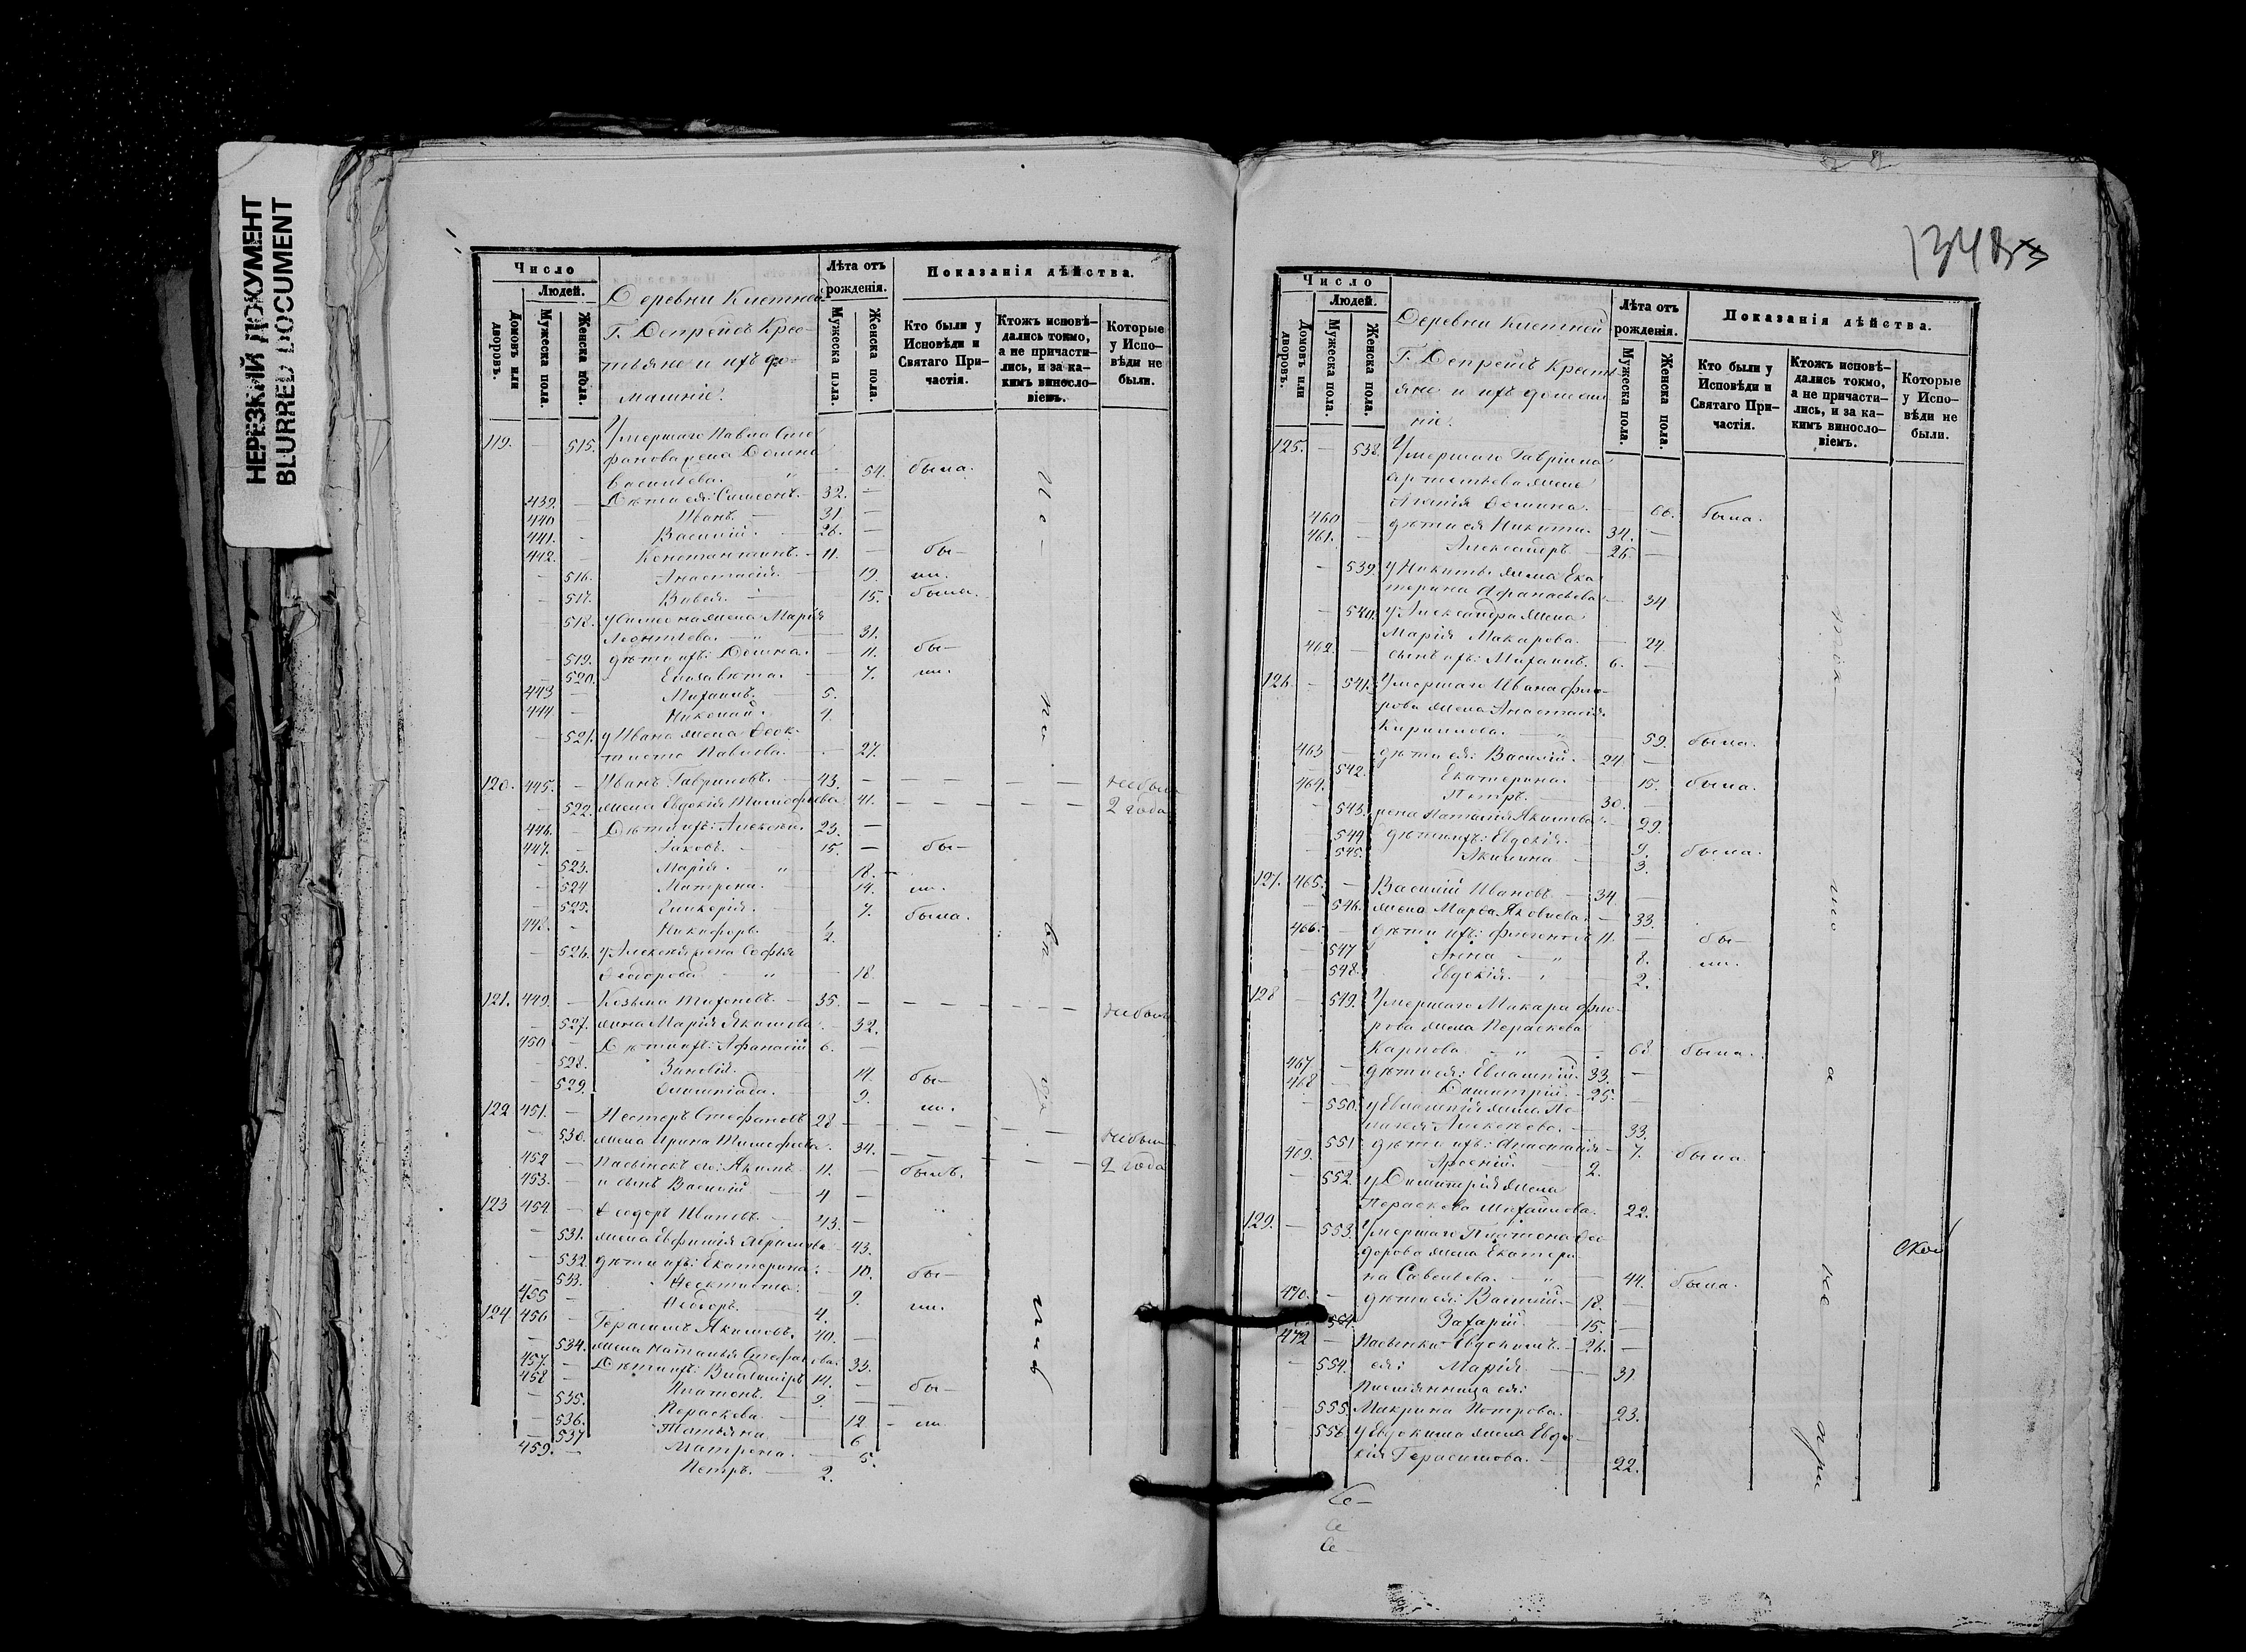 НЕРЕЗКИЙ ДОКУМЕНТ
BLURRED DOCUMENT
Число
Людей.
Домовъ или дворовъ.
Мужеска пола.
Женска пола.
Деревни Клетней
Г. Депрейсъ Крес-
тьяне и ихъ до-
машніе.
Лѣта отъ рожденія.
Мужеска пола.
Женска пола.
Показанія дѣйства.
Кто были у Исповѣди и Святаго При-частія.
Ктожъ исповѣ-дались токмо, а не причасти-лись, и за ка-кимъ винosло-віемъ.
Которые у Испо-вѣди не были.
119. — 515. Умершаго Павла Сте
фанова жена Домна
Васильева. — 54. была.
439. — Дѣти ея: Симеонъ. 32. —
440 — Иванъ. — 31. —
441. — Василій. — 26. —
442. — Константинъ. — 11. — бы—
— 516. Анастасія. — 19. ли.
— 517. — 15. была.
— 518. у Симеона жена Марія
Леонтьева. — 31.
— 519. дѣти ихъ: Домна. — 11. бы—
— 520. Елизавета. — 7. ли.
443 — Михаилъ. — 5.
444. — Николай. 4.
— 521. у Ивана жена Феок-
тиста Павлова. — 27.
120. 445. — Иванъ Гавриловъ. — 43. — — — — небыли
— 522. жена Евдокія Тимофеева. 41. — — — — 2 года
446. — Дѣти ихъ: Алексѣй. 23. —
447. — Іаковъ. — 15. — бы—
— 523. Марія. — 18. —
— 524 Матрона. — 14. ли.
— 525. Гликерія. — 7. была.
448. — Никифоръ. — 2.
— 526. у Алексѣя жена Софья
Феодорова. — 18.
121. 449. — Козьма Тихоновъ. — 35. — — — — — небылъ
— 527. жена Марія Якимова. — 32.
450 — Дѣти ихъ: Афанасій 6. —
— 528. Зиновія. 14. бы—
— 529. Олимпіада. 9. ли.
122 451. — Несторъ Стефановъ 28 — — — — — небыли
— 530. жена Ирина Тимофеева. 34. — — — — 2 года
452 — Пасынокъ его: Якимъ 11. — былъ.
453. — и сынъ Василій — 4 —
123 454. — Феодоръ Ивановъ. — 43. —
— 531. жена Евфимія Абрамова. — 43.
— 532. дѣти ихъ: Екатерина. — 10. бы—
— 533. Феоктиста. — 9. ли.
455 — Феодоръ. — 4.
124 456 — Герасимъ Якимовъ. 40. —
— 534. жена Наталья Стефанова. 33.
457. — Дѣти ихъ: Владиміръ 14. — бы—
458 — Платонъ. — 9. —
— 535. Параскева — 12 — ли.
— 536. Татьяна — 6
— 537 Матрона. — 5.
459. — Петръ. — 2.
Ис-
по
вѣ
1348
Число
Людей.
Домовъ или дворовъ.
Мужеска пола.
Женска пола.
Деревни Клетней
Г. Депрейсъ Кресть
яне и ихъ домаш
ніе.
Лѣта отъ рожденія.
Мужеска пола.
Женска пола.
Показанія дѣйства.
Кто были у Исповѣди и Святаго При-частія.
Ктожъ исповѣ-дались токмо, а не причасти-лись, и за ка-кимъ винosло-віемъ.
Которые у Испо-вѣди не были.
125. — 538. Умершаго Гавріила
жена
66. была.
460 — дѣти ея Никита. 34. —
461. — Александръ — 26. —
— 539. у Никиты жена Ека
терина Афанасьева — 34
— 540. у Александра жена
Марія Макарова. — 24.
462. — сынъ ихъ: Михаилъ. 6. —
126. — 541. Умершаго Ивана Фло-
рова жена Анастасія
Кириллова. — 59. была.
463 — дѣти ея: Василій. — 24 —
— 542. Екатерина. — 15. была.
464. — Петръ. — 30. —
— 543. жена Наталія Якимова. — 29.
— 544 дѣти ихъ: Евдокія. — 9. была.
— 545. Акилина — 3.
127. 465. — Василій Ивановъ. — 34 —
— 546. жена Марфа Яковлева. — 33.
466. — дѣти ихъ: Флегонтъ 11. — бы—
— 547 — 8. ли.
— 548. Евдокія. — 2.
128 — 549. Умершаго Макара Фло-
рова жена Параскева
Карпова — 68 была.
467 — дѣти ея: Евлампій. 33. —
468 — Димитрій. 25. —
— 550. у Евлампія жена Пе-
лагея Алексѣева. — 33.
— 551 дѣти ихъ: Анастасія — 7. была.
469. — Арсеній. — 2.
— 552. у Димитрія жена
Параскева Михайлова. 22.
129. — 553. Умершаго Платона Фео
дорова жена Екатери
на Савельева. — 44. была.
470. — дѣти ея: Василій. — 18. —
Захарій. — 15. —
472 — Пасынки Евдокимъ. — 26. —
— 554. ея: Марія. — 31
Племянница ея:
— 555. Макрина Петрова. 23.
— 556. у Евдокима жена Евдо-
кія Герасимова. — 22.